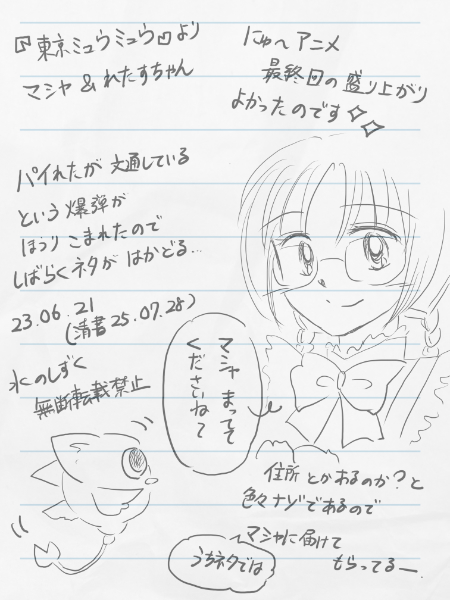 『東京ミュウミュウ』より
マシャ&れたすちゃん
にゅ~アニメ
最終回の盛り上がり
よかったのです
パイれたが 文通している
という爆弾が
ほうりこまれたので
しばらくネタが はかどる…
23.06.21
(清書25.07.28)
水のしずく
無断転載禁止
マシャ まってて
くださいねて
住所とかあるのか?と
色々ナゾであるので
マシャに届けて
もらってるー
うちネタでは